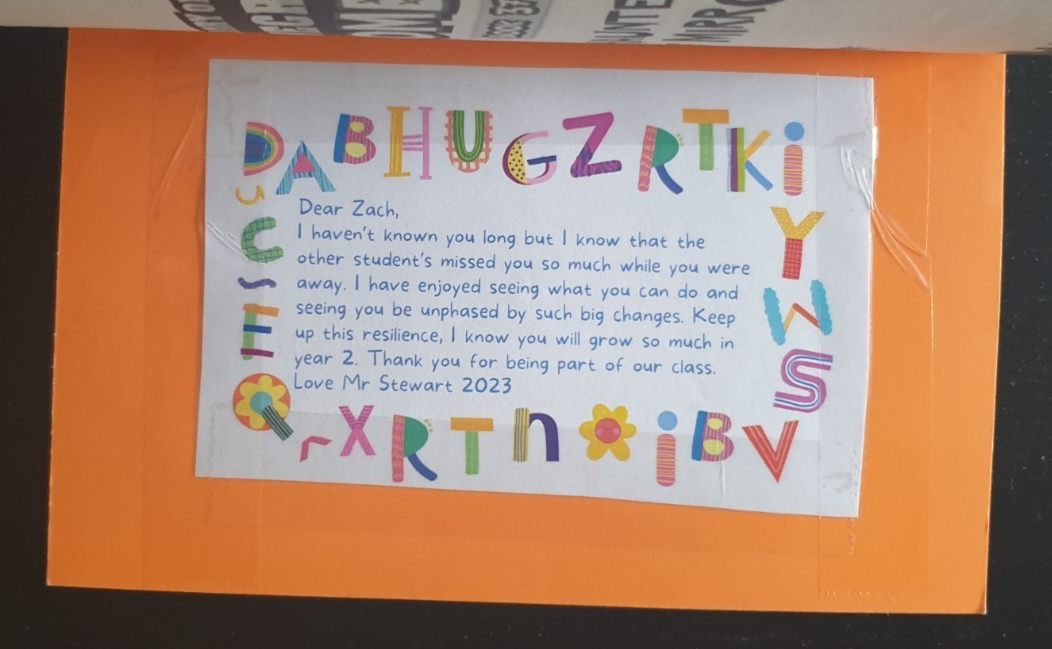 DABHUGZRTKi
Dear Zach,
I haven't known you long but I know that the
other student's missed you so much while you were
away. I have enjoyed seeing what you can do and
seeing you be unphased by such big changes. Keep
up this resilience, I know you will grow so much in
year 2. Thank you for being part of our class.
Love Mr Stewart 2023
C
E
Q
Y
W
S
rXRTn
iBV